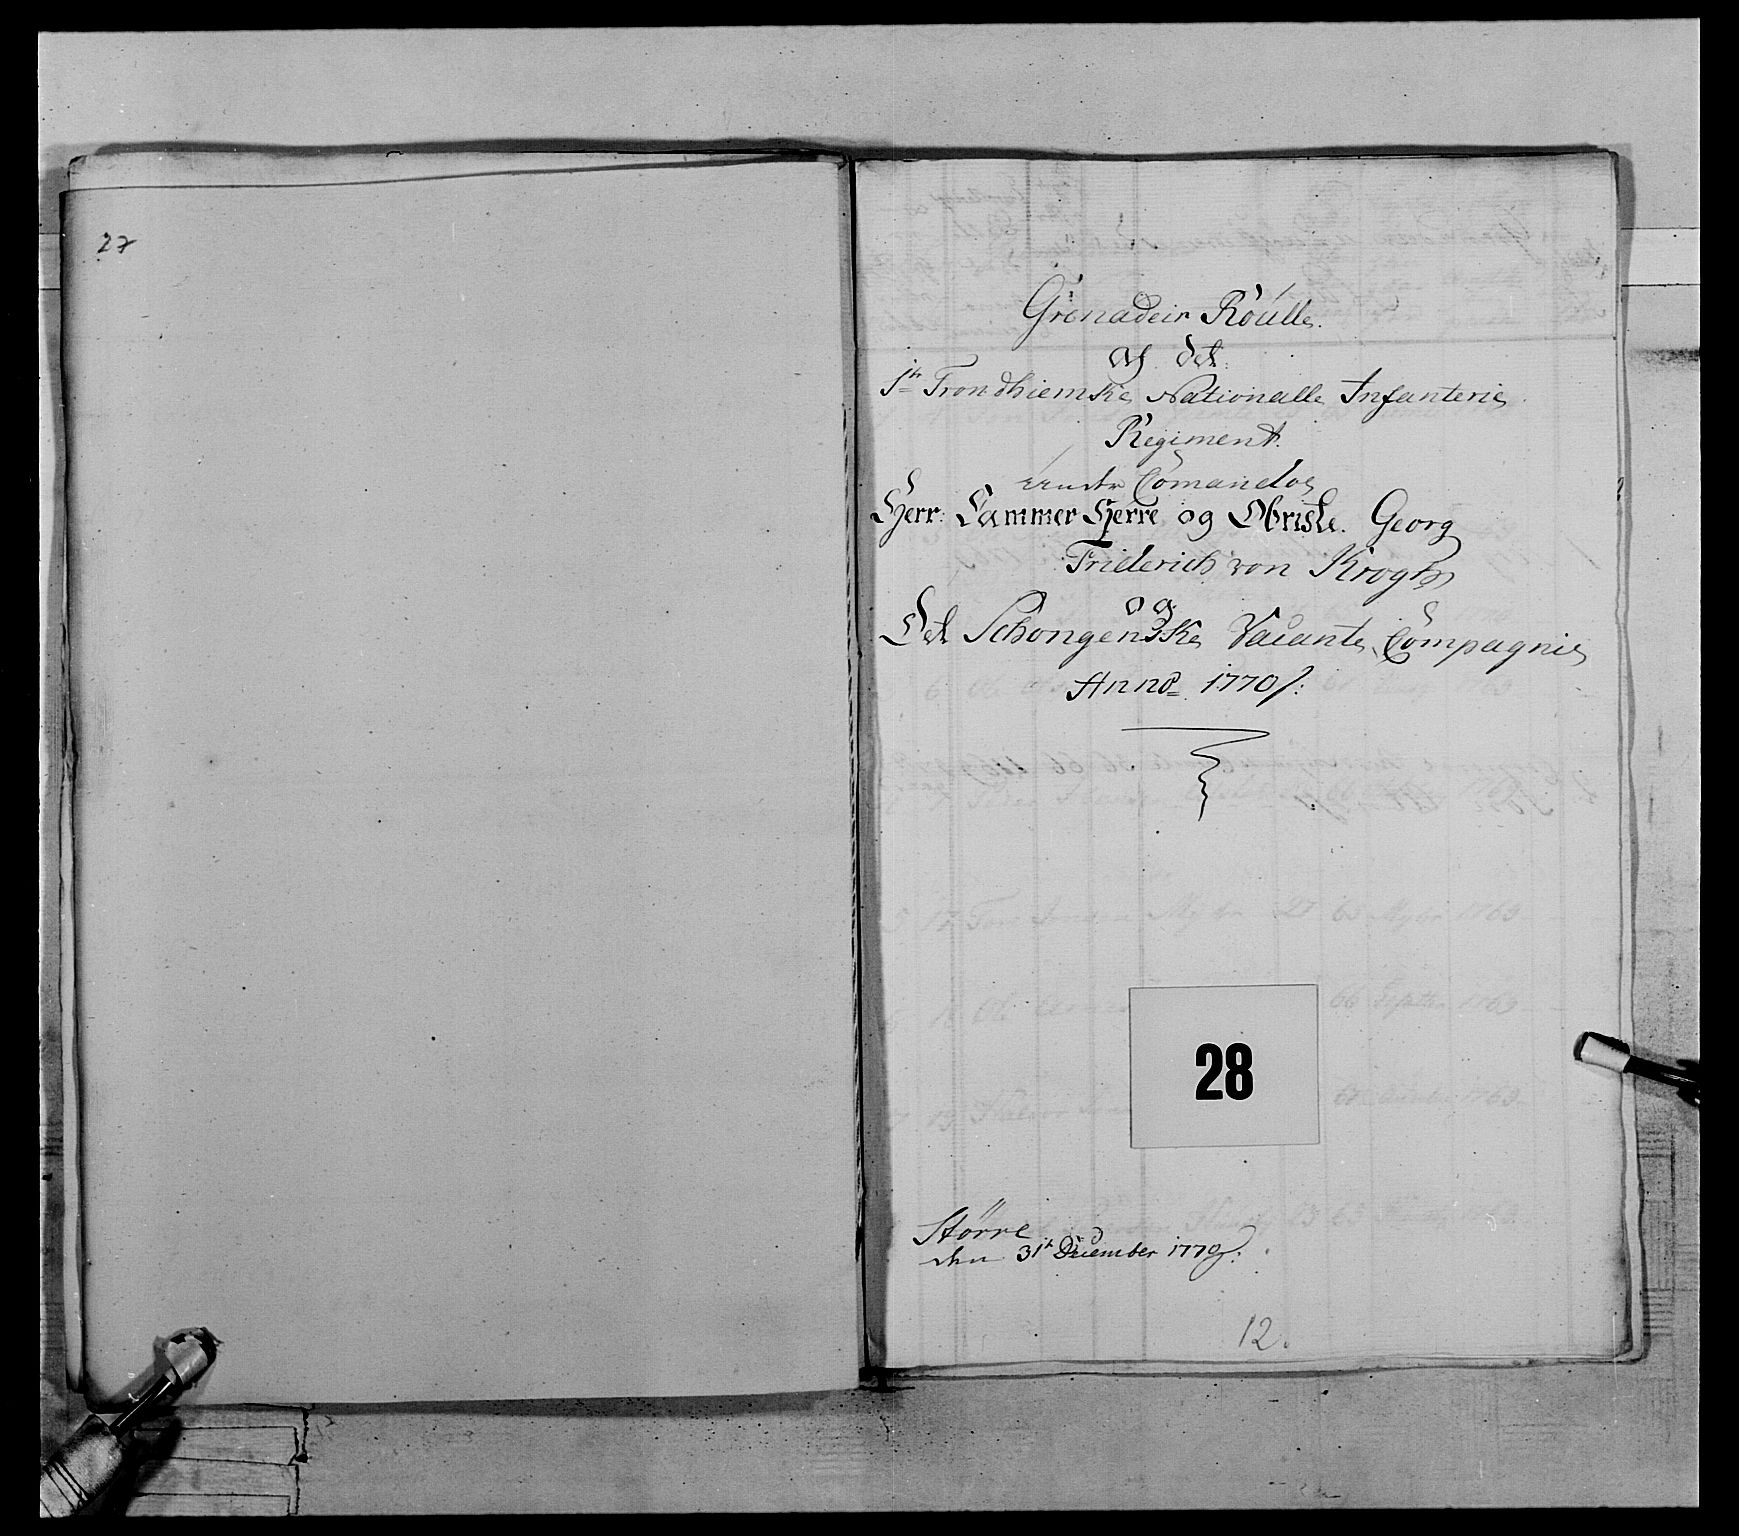 27
Grenadeir Roulle
af det
1te Trondhiemske Nationalle Infanterie
Regiment
under Comando
Herr Cammer Herre og Obriste Georg
Friderich von Krogh
og
Det Schongenske Vacante Compagnie
Anno 1770
28
Större
den 31t December 1770
12.